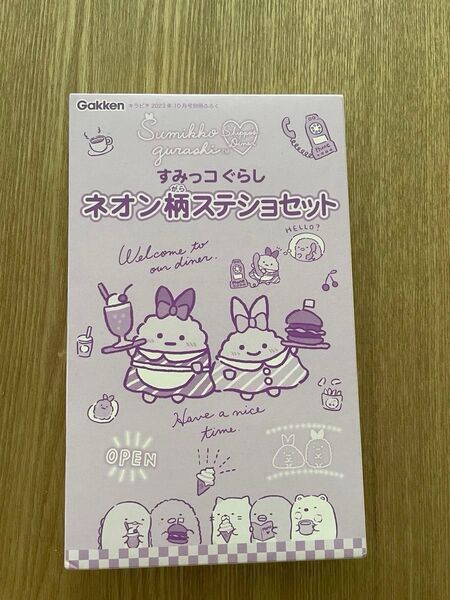 Gakken キラピチ 2023年10月号別冊ふろく
Sumikko
gurashi
すみっコぐらし
がら
ネオン柄ステショセット
HELLO?
Welcome to
our diner.
Have a nice
time.
OPEN